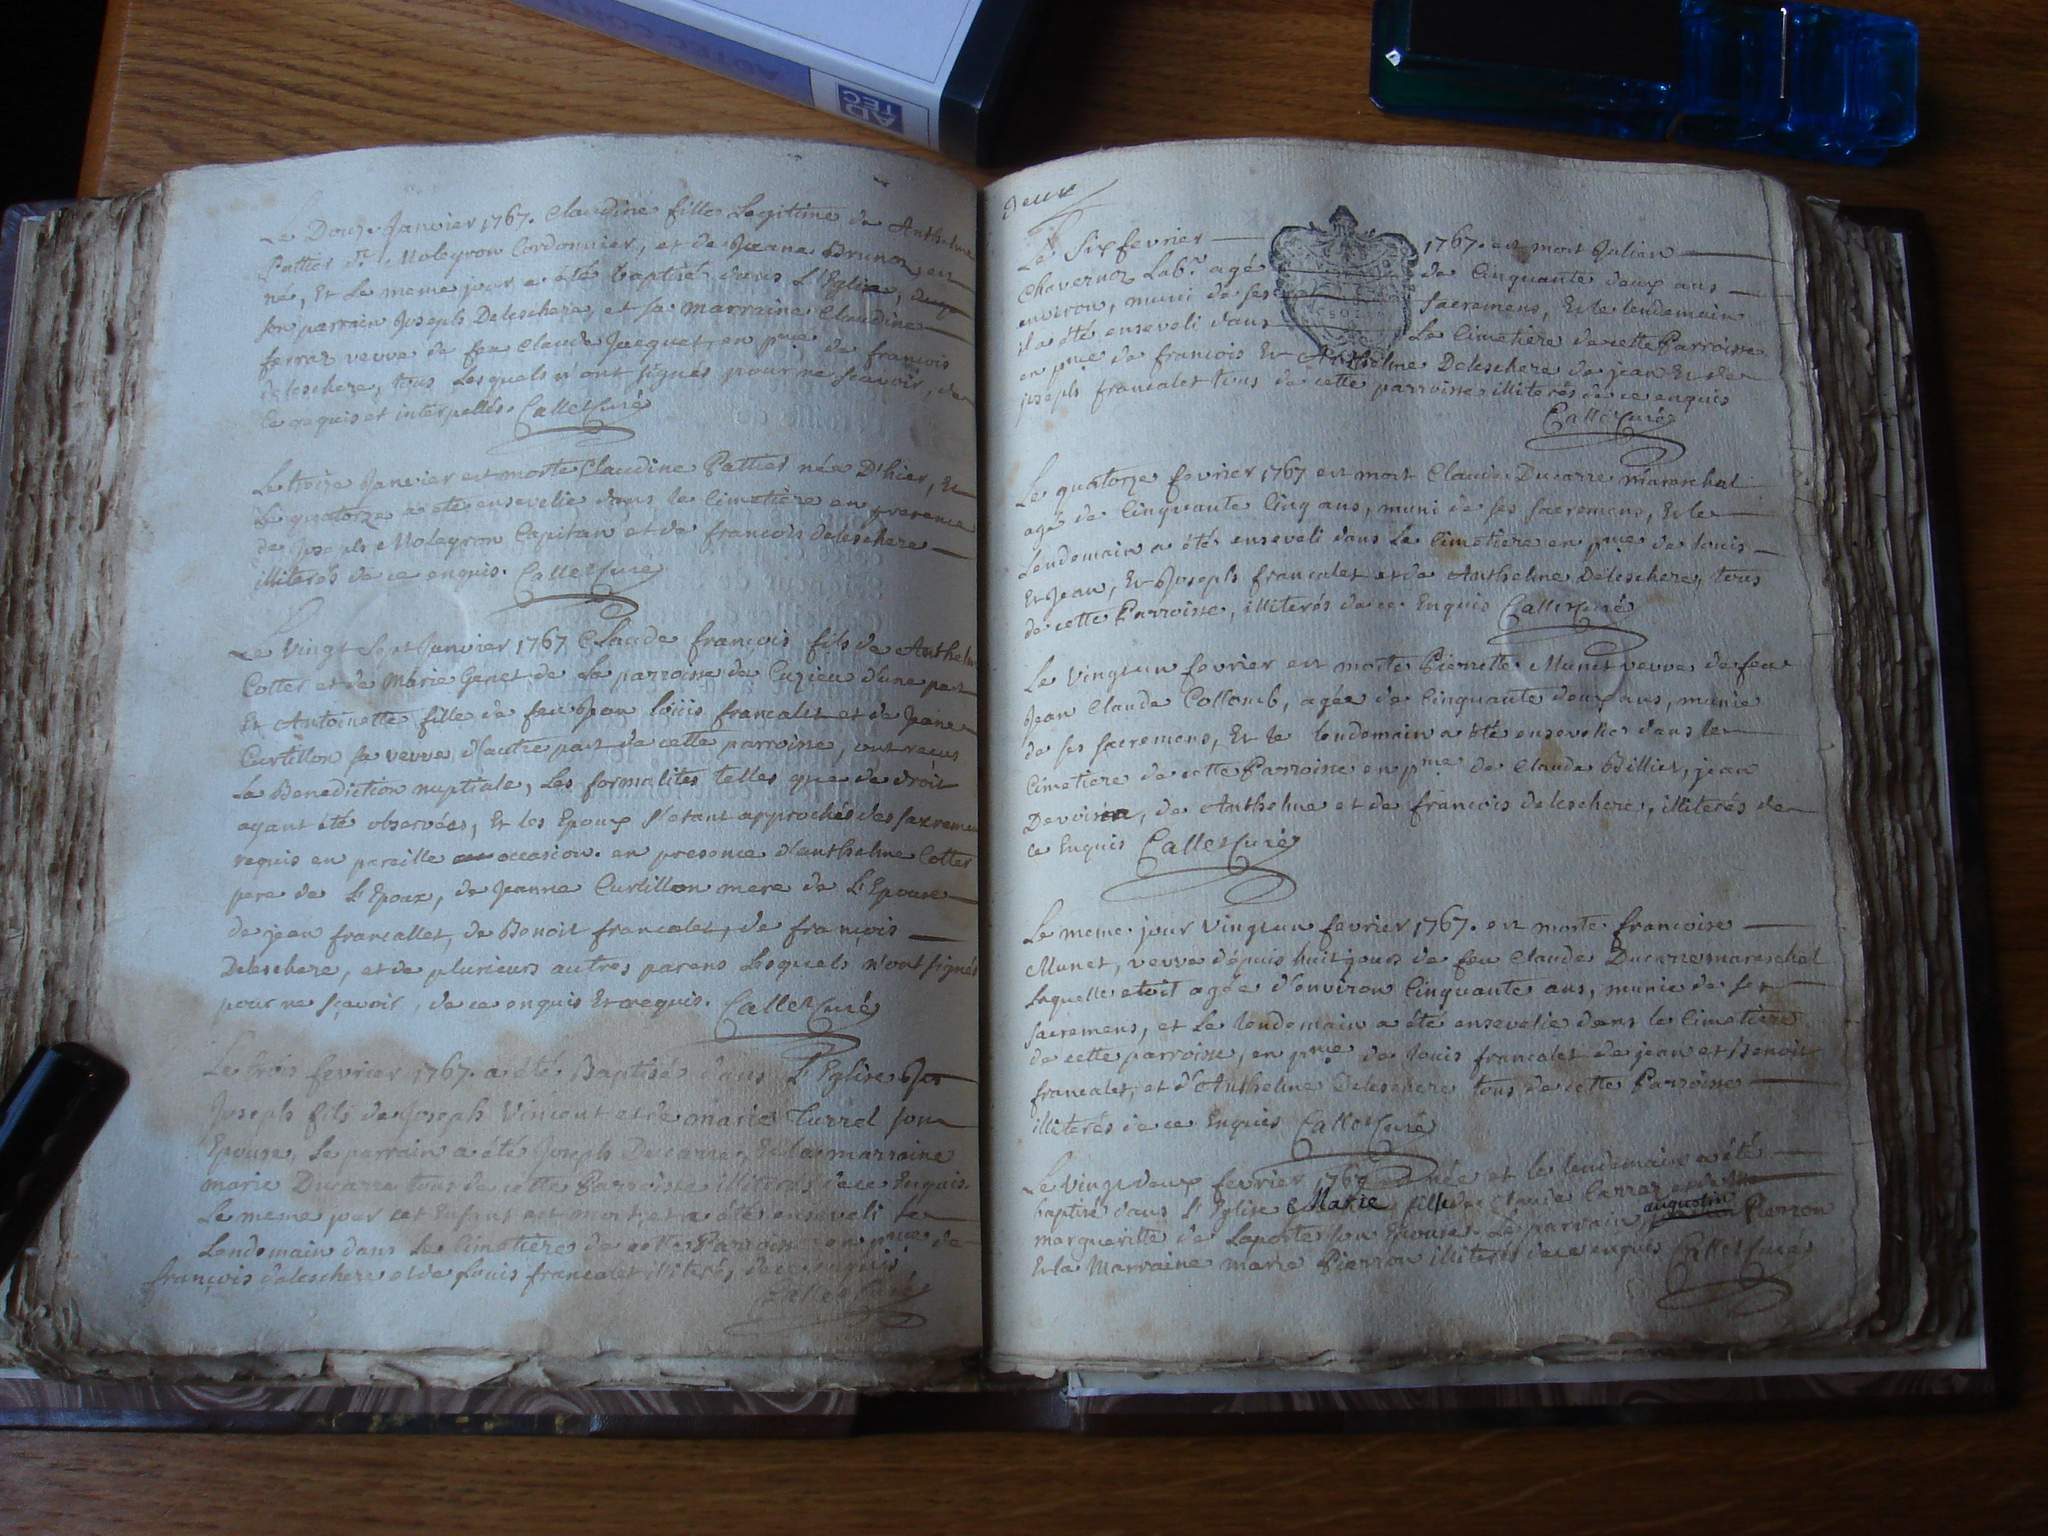 AD TEC
Le Douze Janvier 1767. Claudine fille Legitime de Anthelme
Pattier dt. Moleyron Cordonnier, et de Jeane Brunon, est
né, et Le meme jour a été baptisé dans L'Eglise,
son parrain Joseph Deleschere, et sa marraine Claudine
ferraz veuve de feu Claude Jacquet, en pnce de francois
deleschere, tous Lesquels n'ont signés pour ne scavoir, de
ce requis et interpellés. Callet Curé
Le treize Janvier est morte Claudine Pattier née D'hier, et
Le quatorze a eté ensevelie dans le Cimetière en presence
de Joseph Moleyron Capitan et de francois deleschere
illiterés de ce enquis. Callet Curé
Le Vingt Sept Janvier 1767 Claude françois fils de Anthelme
Cotter et de Marie Genet de La parroisse de Cuzieu d'une part
Et Antoinette fille de feu Jean loüis francalet et de Jeane
Curtillon sa veuve d'autre part de cette parroisse, ont recus
La Benediction nuptiale, Les formalites telles que de droit
ayant été observées, Et les Epoux s'etant approchés des sacremens
requis en pareille occasion. en presence d'anthelme Cotter
pere de L'Epoux, de Jeanne Curtillon mere de L'Epouse
de jean francallet, de Benoit francalet, de françois
Deleschere, et de plusieurs autres parens Lesquels n'ont signés
pour ne sçavoir, de ce enquis et requis. Callet Curé
Le trois fevrier 1767. a été Baptisé dans L'Eglise
Joseph fils de Joseph Vincent et de marie Turrel son
Epouse, Le parrain a été Joseph Ducarre, Et la marraine
marie Ducarre tous de cette Parroisse illiterés de ce Enquis.
Le meme jour cet Enfant est mort, et a été enseveli le
Lendemain dans Le Cimetiere de cette Parroisse en pnce de
françois deleschere et de Louis francalet illiterés de ce enquis,
Callet Curé
deux
Le Six fevrier 1767. est mort Julien
Chavernoz Labr. agé de Cinquante deux ans
environ, muni de ses sacremens, Et le lendemain
il a été enseveli dans Le Cimetiere de cette Parroisse
en pnce de francois Et Anthelme Deleschere de jean Et de
joseph francalet tous de cette parroisse illiterés de ce enquis
Callet Curé
Le quatorze fevrier 1767 est mort Claude Ducarre mareschal
agé de Cinquante Cinq ans, muni de ses sacremens, Et le
Lendemain a été enseveli dans Le Cimetiere en pnce de louis
Et Jean, Et Joseph francalet et de Anthelme Deleschere, tous
de cette Parroisse, illiterés de ce Enquis Callet Curé
Le Vingtun fevrier est morte Pierrette Munet veuve de feu
Jean Claude Collomb, agée de Cinquante deux ans, munie
de ses sacremens, Et le lendemain a été ensevelie dans le
Cimetiere de cette Parroisse en pnce de Claude Billier, jean
Devoisin, de Anthelme et de francois deleschere, illiterés de
ce Enquis Callet Curé
Le meme jour Vingtun fevrier 1767. est morte francoise
Munet, veuve depuis huit jours de feu Claude Ducarre mareschal
Laquelle etoit agée d'environ Cinquante ans, munie de ses
sacremens, et Le lendemain a été ensevelie dans le Cimetière
de cette parroisse, en pnce de louis francalet de jean et Benoit
francalet, et d'Anthelme Deleschere tous de cette Parroisse
illiterés de ce Enquis Callet Curé
Le Vingt deux fevrier 1767 est née et le lendemain a été
baptisé dans L'Eglise Marie fille de Claude Carraz et de
margueritte de Laporte son Epouse. Le parrain augustin Pierron
Et la Marraine marie Pierron illiterés de ce enquis Callet Curé